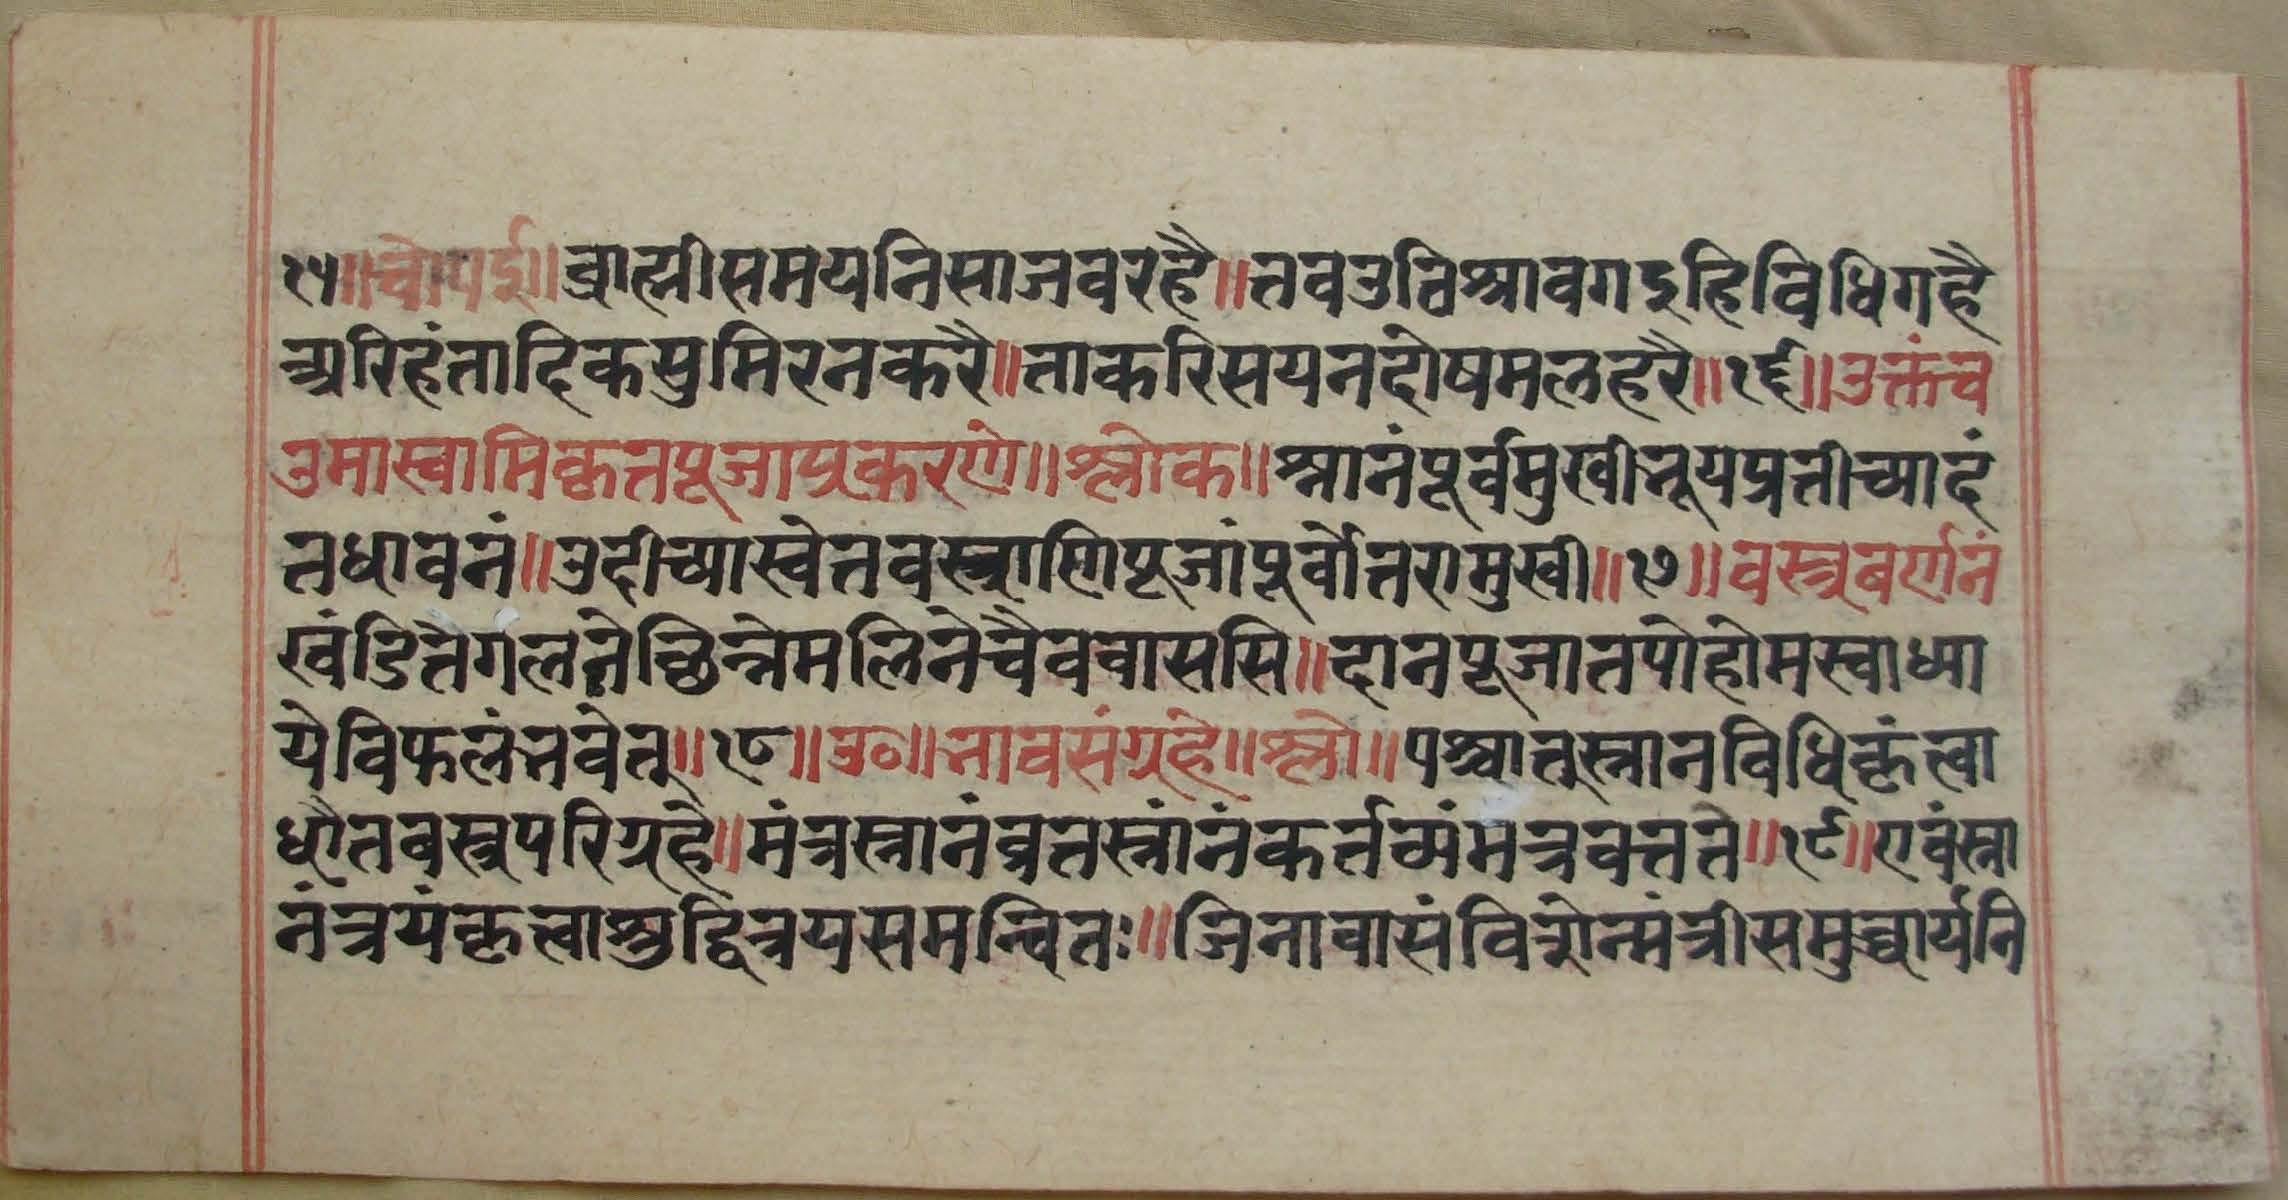 १५॥चोपई॥ब्राह्मीसमयनिसाजवरहै॥तवउठिश्रावगइहिविधिगहै
अरिहंतादिकसुमिरनकरै॥ताकरिसयनदोषमलहरै॥१६॥उक्तंच
उमास्वामिकृतपूजाप्रकरणे॥श्लोक॥श्नानंपूर्वमुखीभूयप्रतीच्यादं
तधावनं॥उदीच्यास्वेतवस्त्राणिपूजांपूर्वोत्तरामुखी॥१७॥वस्त्रबर्णनं
खंडितेगलनेछिन्नेमलिनेचैववाससि॥दानपूजातपोहोमस्वाध्या
येविफलंभवेत्॥१८॥उ०॥भावसंग्रहे॥श्लो॥पश्चात्स्नानविधिकृंत्वा
धौतवस्त्रपरिग्रहे॥मंत्रस्नानंव्रतस्नांनंकर्तव्यंमंत्रवत्तते॥१९॥एवंस्ना
नंत्रयंकृत्वाशुद्धित्रयसमन्वितः॥जिनावासंविशेन्मंत्रीसमुच्चार्यनि